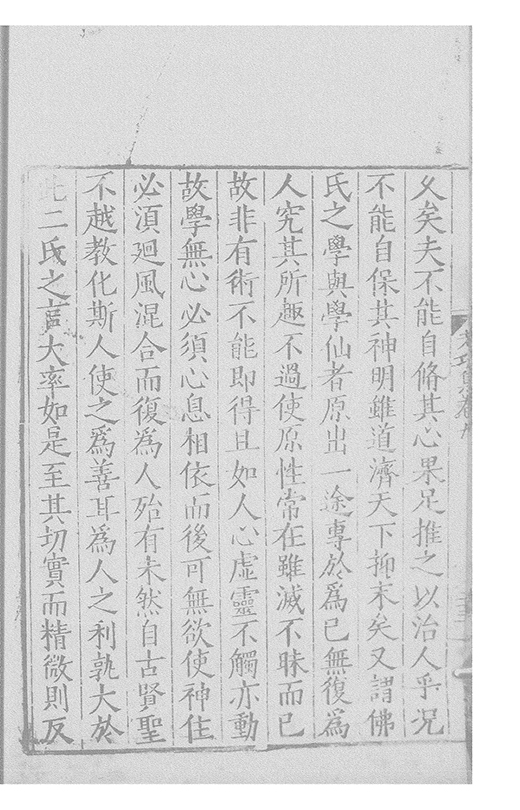 乆矣夫不能自脩其心果足推之以治人乎況
不能自保其神明雖道濟天下抑末矣又謂佛
氏之學與學仙者原出一途專於爲己無復爲
人究其所趣不過使原性常在雖滅不昧而已
故非有術不能即得且如人心虛靈不觸亦動
故學無心必須心息相依而後可無欲使神住
必須廻風混合而復爲人殆有未然自古賢聖
不越教化斯人使之爲善耳爲人之利孰大於
此二氏之言大率如是至其切實而精微則反